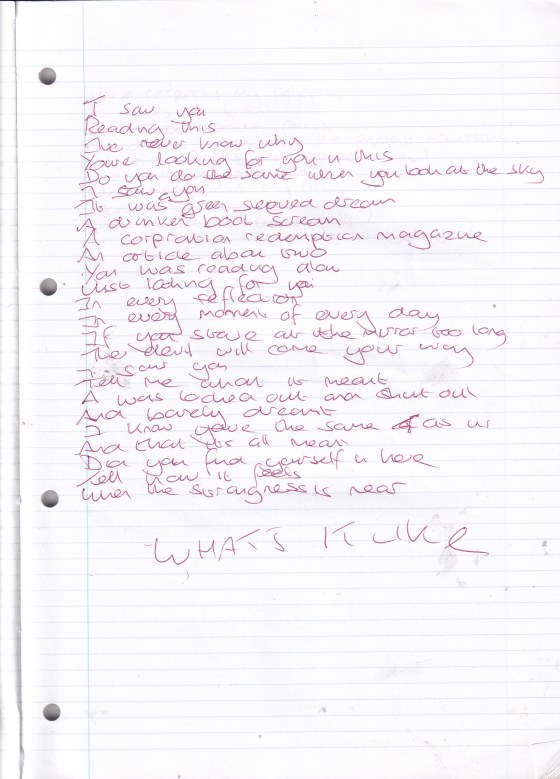 I saw you
Reading this
I've never know why
Youve looking for you in this
Do you do the same when you look at the sky
I saw you
It was a green sequed dream
A drunken book scream
A corpration redemption magazine
An article about two
You was reading alou
Just looking for you
In every reflection
In every moment of every day
If you stare at the mirror too long
The devil will come your way
I saw you
Tell me what it meant
A was locked out and shut out
And barely dreamt
I know youve the same as us
And that its all mean
Did you find yourself in here
Tell how it feels
When the strangness is near
WHATS IT LIKE